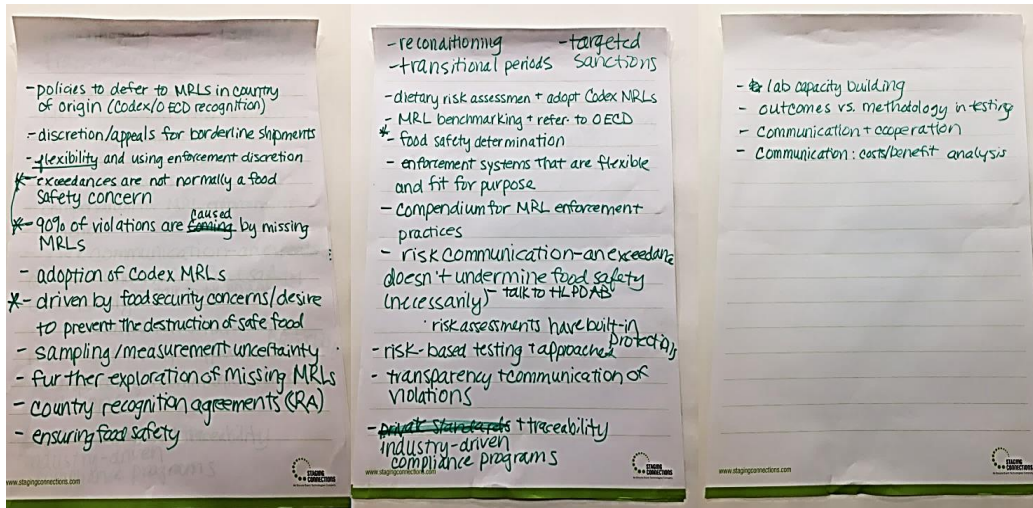 - policies to defer to MRLs in country
of origin (Codex/OECD recognition)
- discretion/appeals for borderline shipments
- flexibility and using enforcement discretion
* exceedances are not normally a food
safety concern
caused
* - 90% of violations are coming by missing
MRLs
- adoption of Codex MRLs
* - driven by food security concerns/desire
to prevent the destruction of safe food
- sampling/measurement uncertainty
- further exploration of missing MRLs
- country recognition agreements (RA)
- ensuring food safety
www.stagingconnections.com
STAGING
CONNECTIONS
- reconditioning - targeted
- transitional periods sanctions
- dietary risk assessmen + adopt Codex MRLs
- MRL benchmarking + refer to OECD
* - food safety determination
- enforcement systems that are flexible
and fit for purpose
- compendium for MRL enforcement
practices
- risk communication - an exceedanc
doesn't undermine food safety
(necessarily) - talk to HLPDAB
· risk assessments have built-in
protections
- risk-based testing + approaches
- transparency + communication of
violations
- private standards + traceability
industry-driven
compliance programs
www.stagingconnections.com
STAGING
CONNECTIONS
- lab capacity building
- outcomes vs. methodology in testing
- communication + cooperation
- communication: costs/benefit analysis
www.stagingconnections.com
STAGING
CONNECTIONS